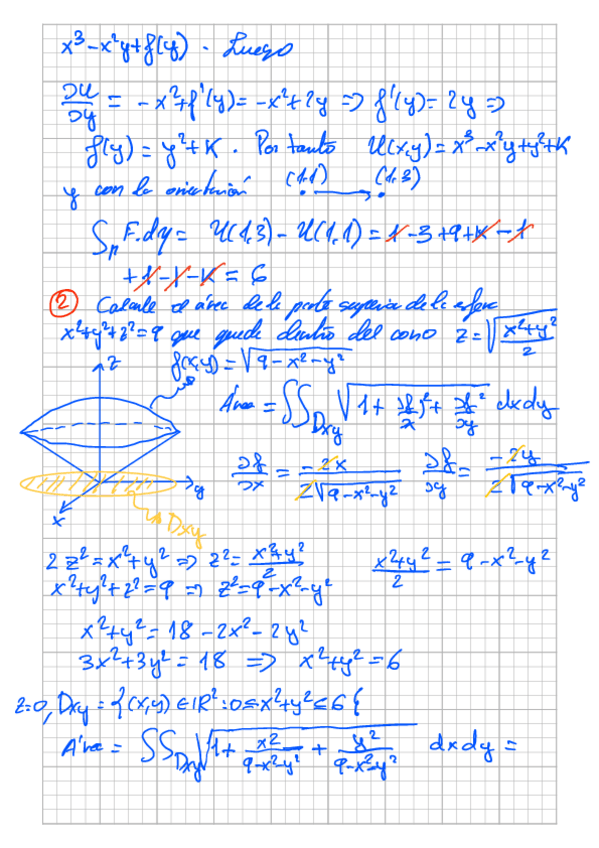 x³-x²y+f(y). Luego
∂U/∂y = -x²+f'(y) = -x²+2y ⇒ f'(y) = 2y ⇒
f(y) = y²+K. Por tanto U(x,y) = x³-x²y+y²+K
y con la orientación (1,1) → (1,3)
∫_P F.dγ = U(1,3) - U(1,1) = 1-3+9+K-1
+1-1-K = 6
② Calcule el área de la parte superior de la esfera
x²+y²+z²=9 que quede dentro del cono z=√((x²+y²)/2)
z
f(x,y) = √(9-x²-y²)
Área = ∬_Dxy √(1+(∂f/∂x)²+(∂f/∂y)²) dxdy
∂f/∂x = -2x/(2√(9-x²-y²)) ∂f/∂y = -2y/(2√(9-x²-y²))
y
x
Dxy
2z²=x²+y² ⇒ z²=(x²+y²)/2 (x²+y²)/2 = 9-x²-y²
x²+y²+z²=9 ⇒ z²=9-x²-y²
x²+y²=18-2x²-2y²
3x²+3y²=18 ⇒ x²+y²=6
z=0, Dxy = {(x,y)∈ℝ²:0≤x²+y²≤6{
Área = ∬_Dxy √(1+x2/(9-x²-y²)+y²/(9-x²-y²)) dxdy =